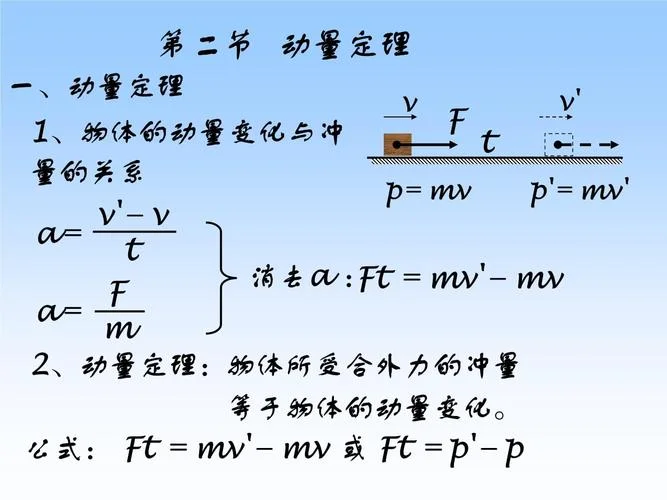 第二节 动量定理
一、动量定理
1、物体的动量变化与冲
量的关系
v v'
F
t
p= mv p'= mv'
a= v'– v / t
a= F / m
消去a:Ft = mv'– mv
2、动量定理：物体所受合外力的冲量
等于物体的动量变化。
公式： Ft = mv'– mv 或 Ft = p'– p